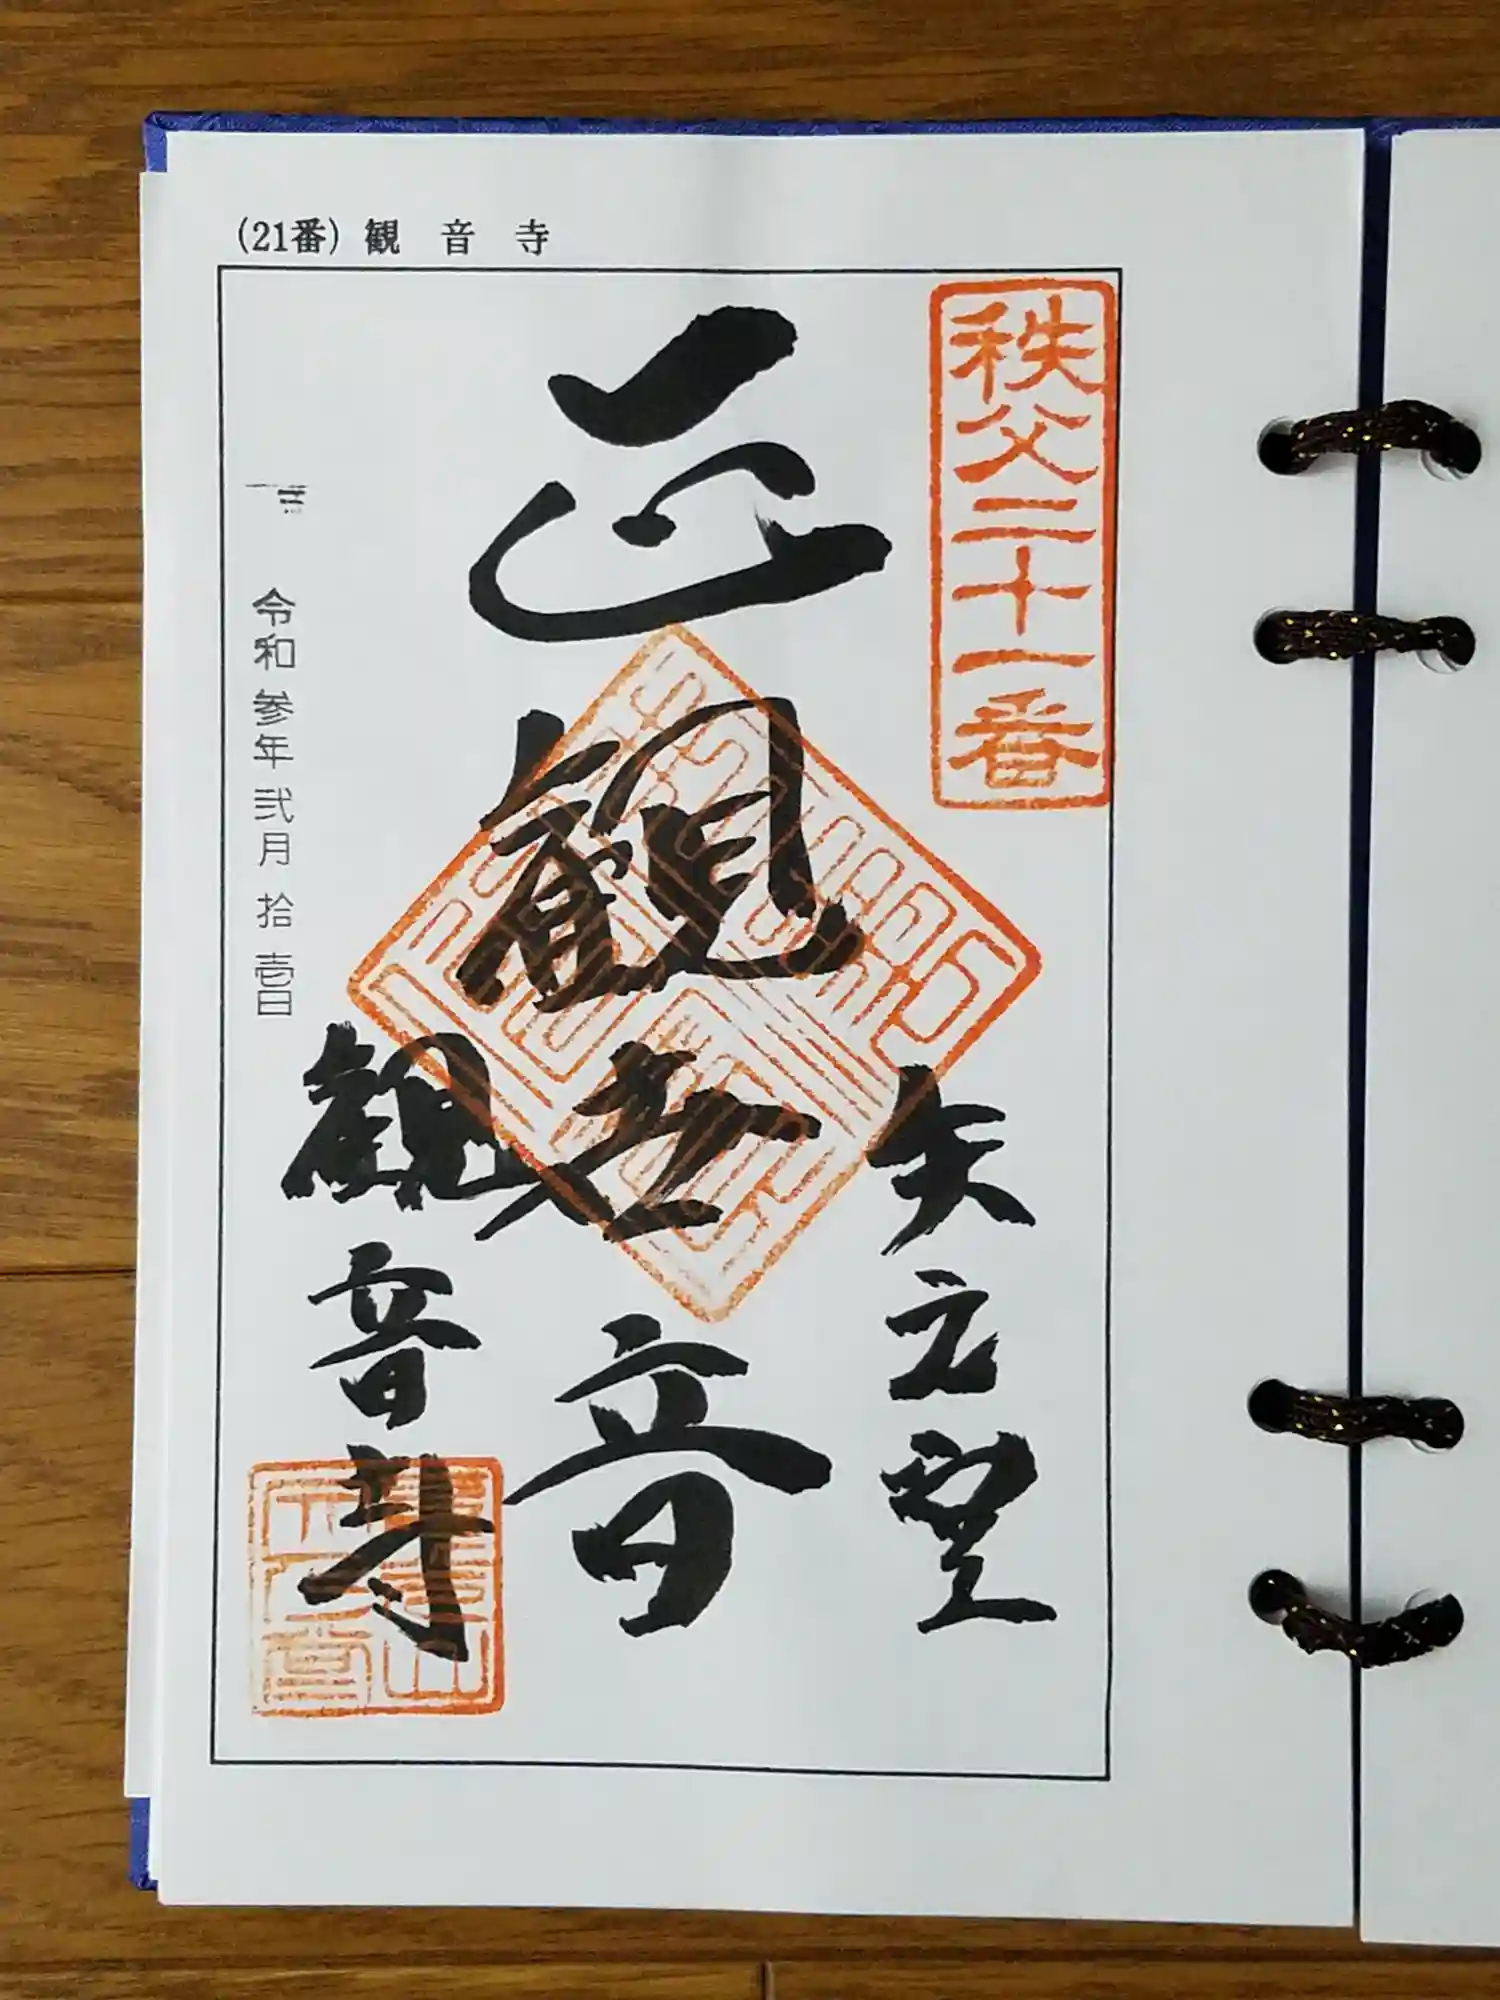 (21番) 観音寺
秩父二十一番
矢之堂
正観世音
観音寺
令和参年弐月拾壱日